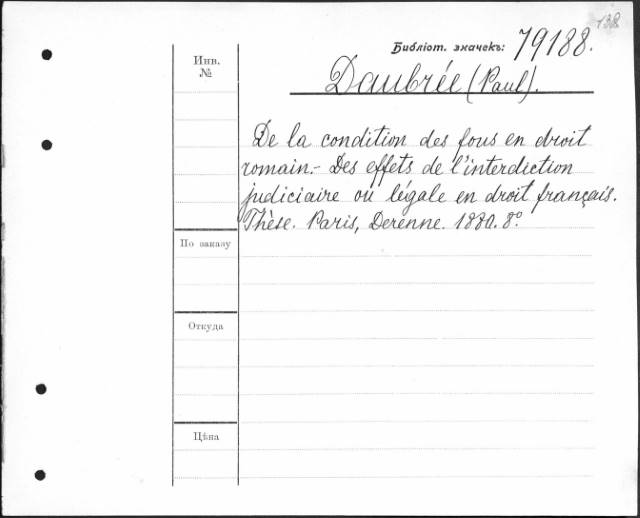 138
Библіот. значекъ: 79188.
Инв.
№
Daubrée (Paul).
De la condition des fous en droit
romain.- Des effets de l'interdiction
judiciaire ou légale en droit français.
Thèse. Paris, Derenne. 1880. 8°.
По заказу
Откуда
Цѣна